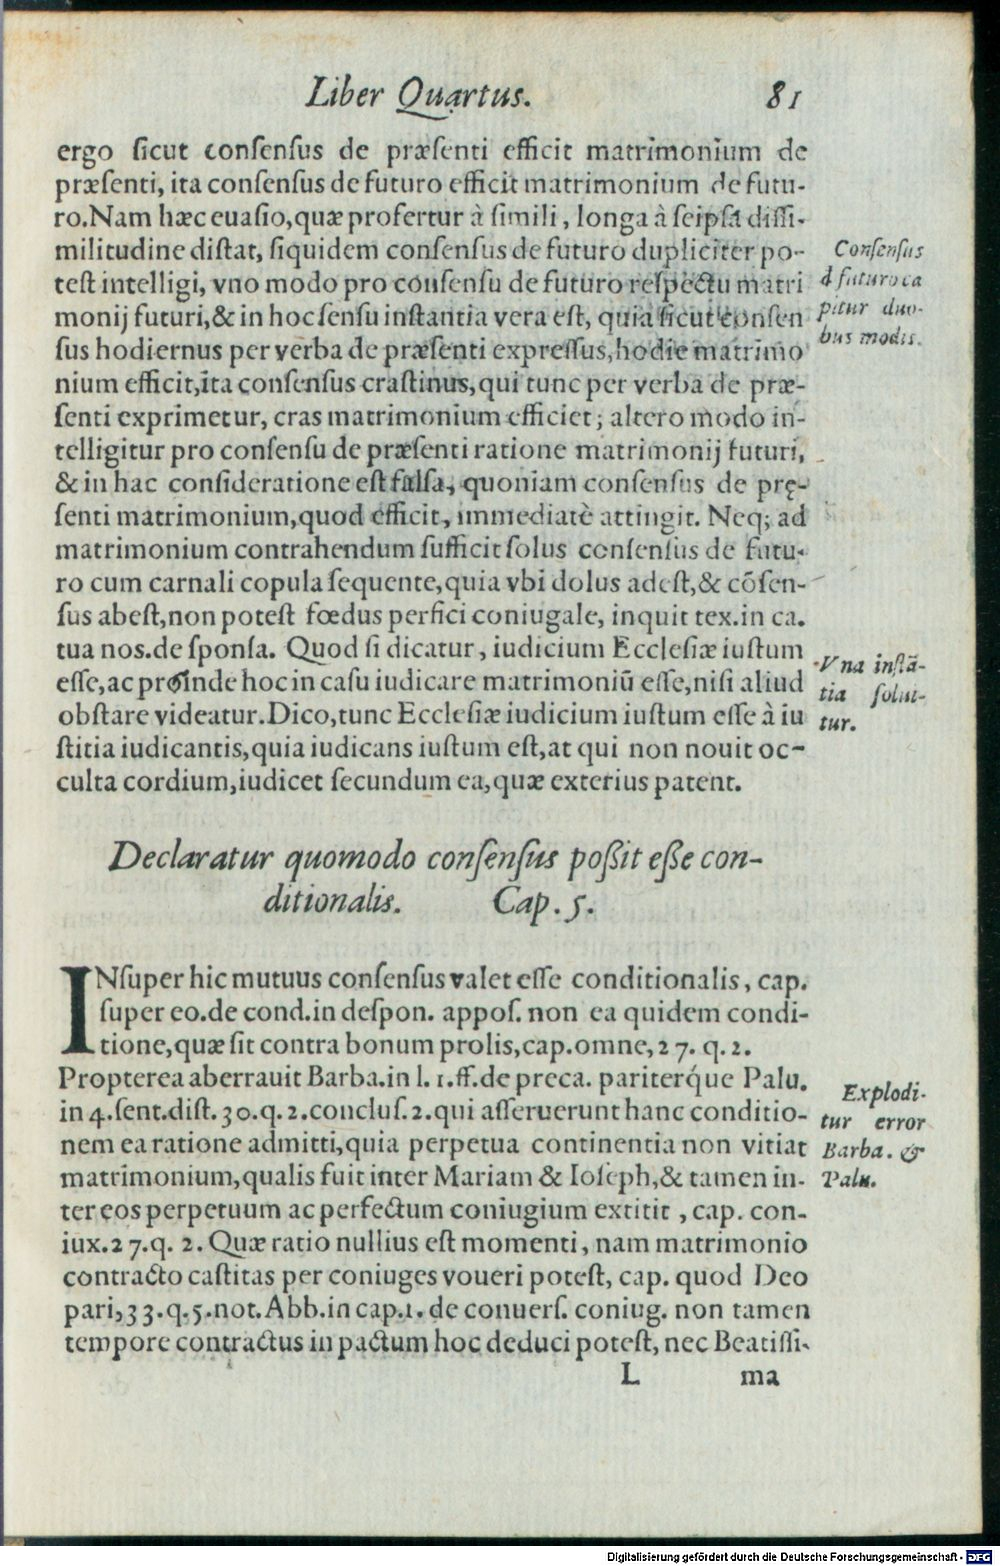 Liber Quartus. 81
ergo sicut consensus de præsenti efficit matrimonium de
præsenti, ita consensus de futuro efficit matrimonium de futu-
ro. Nam hæc euasio, quæ profertur à simili, longa à seipsa dissi-
militudine distat, siquidem consensus de futuro dupliciter po-
test intelligi, vno modo pro consensu de futuro respectu matri
monij futuri, & in hoc sensu instantia vera est, quia sicut consen
sus hodiernus per verba de præsenti expressus, hodie matrimo
nium efficit, ita consensus crastinus, qui tunc per verba de præ-
senti exprimetur, cras matrimonium efficiet; altero modo in-
telligitur pro consensu de præsenti ratione matrimonij futuri,
& in hac consideratione est falsa, quoniam consensus de prę-
senti matrimonium, quod efficit, immediatè attingit. Neq; ad
matrimonium contrahendum sufficit solus consensus de futu-
ro cum carnali copula sequente, quia vbi dolus adest, & cõsen-
sus abest, non potest fœdus perfici coniugale, inquit tex. in ca.
tua nos. de sponsa. Quod si dicatur, iudicium Ecclesiæ iustum
esse, ac proinde hoc in casu iudicare matrimoniũ esse, nisi aliud
obstare videatur. Dico, tunc Ecclesiæ iudicium iustum esse à iu
stitia iudicantis, quia iudicans iustum est, at qui non nouit oc-
culta cordium, iudicet secundum ea, quæ exterius patent.
Consensus
d futuro ca
pitur duo-
bus modis.
Vna instã-
tia solui-
tur.
Declaratur quomodo consensus poßit eße con-
ditionalis. Cap. 5.
INsuper hic mutuus consensus valet esse conditionalis, cap.
super eo. de cond. in despon. appos. non ea quidem condi-
tione, quæ sit contra bonum prolis, cap. omne, 27. q. 2.
Propterea aberrauit Barba. in l. 1. ff. de preca. pariterq́ue Palu.
in 4. sent. dist. 30. q. 2. conclus. 2. qui asseruerunt hanc conditio-
nem ea ratione admitti, quia perpetua continentia non vitiat
matrimonium, qualis fuit inter Mariam & Ioseph, & tamen in-
ter eos perpetuum ac perfectum coniugium extitit, cap. con-
iux. 27. q. 2. Quæ ratio nullius est momenti, nam matrimonio
contracto castitas per coniuges voueri potest, cap. quod Deo
pari, 33. q. 5. not. Abb. in cap. 1. de conuers. coniug. non tamen
tempore contractus in pactum hoc deduci potest, nec Beatissi-
Explodi-
tur error
Barba. &
Palu.
L ma
Digitalisierung gefördert durch die Deutsche Forschungsgemeinschaft - DFG